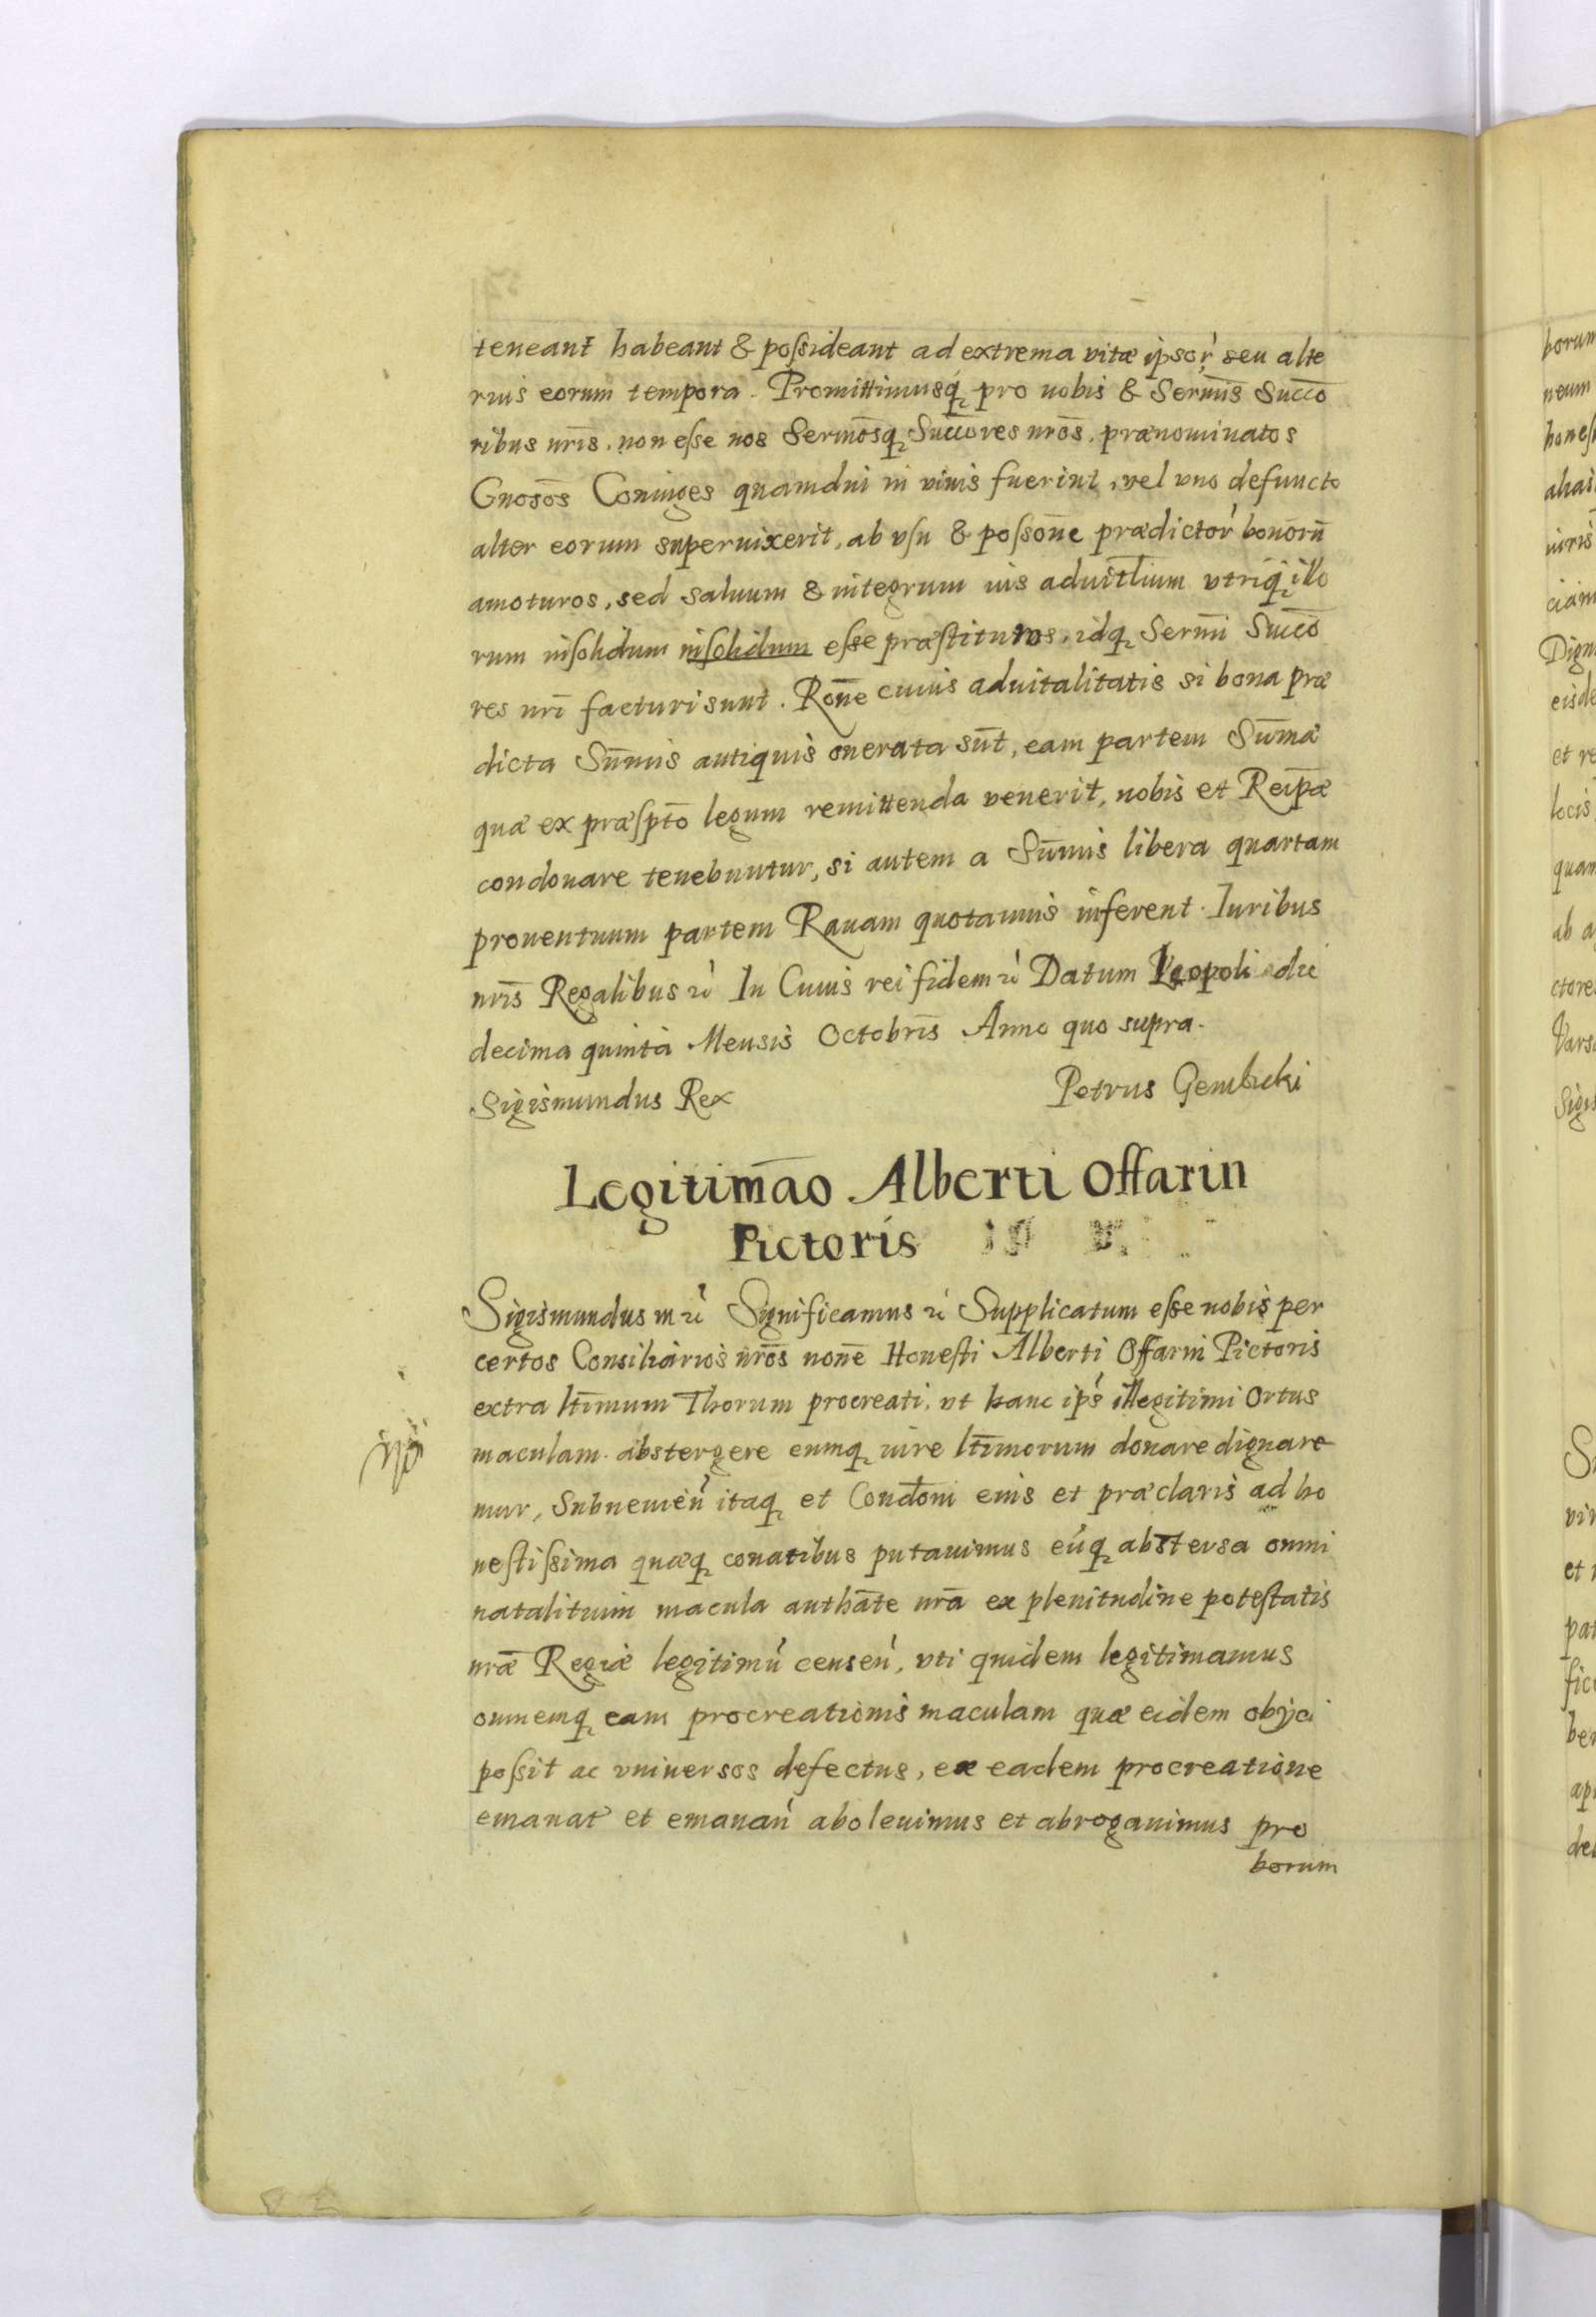 teneant habeant & possideant ad extrema vitæ ipsor̀ seu alte
rius eorum tempora. Promittimusq́ pro nobis & Sermis̄ Succō
ribus nrīs, non esse nos Sermōsq Succōres nrōs, prænominatos
Gnosōs Coniuges quamdiu in viuis fuerint, vel vno defuncto
alter eorum superuixerit, ab vsu & possonē prædictor̀ bonorū
amoturos, sed saluum & integrum ius aduitlium vtriq illo
rum insolidum insolidum esse præstituros, idq Sermī Succō
res nrī facturi sunt. Ronē cuius aduitalitatis si bona præ
dicta Sum̄is antiquis onerata sūt, eam partem Sum̄æ
quæ ex præsptō legum remittenda venerit, nobis et Reipǣ
condonare tenebuntur, si autem a Sum̄is libera quartam
prouentuum partem Rauam quotannis inferent. Iuribus
nrīs Regalibus &c̀ In Cuius rei fidem &c̀ Datum Leopoli die
decima quinta Mensis Octobrīs Anno quo supra.
Sigismundus Rex Petrus Gembicki
Legitimāo Alberti Offarin
Pictoris
Sigismundus III &c̀ Significamus &c̀ Supplicatum esse nobis per
certos Consiliarios nrōs nonē Honesti Alberti Offarin Pictoris
extra ltīmum Thorum procreati, vt hanc ips̀ illegitimi Ortus
maculam abstergere eumq iure ltīmorum donare dignare
mur, Subueniēǹ itaq et Condoni eius et præclaris ad ho
nestissima quæq conatibus putauimus eūq abstersa omni
natalitium macula authāte nrā ex plenitudine potestatis
nrǣ Regiæ legitimù censeǹ, vti quidem legitimamus
omnemq eam procreationis maculam quæ eidem obijci
possit ac vniuersos defectus, ex eadem procreatione
emanat̀ et emanaǹ aboleuimus et abrogauimus pro
borum